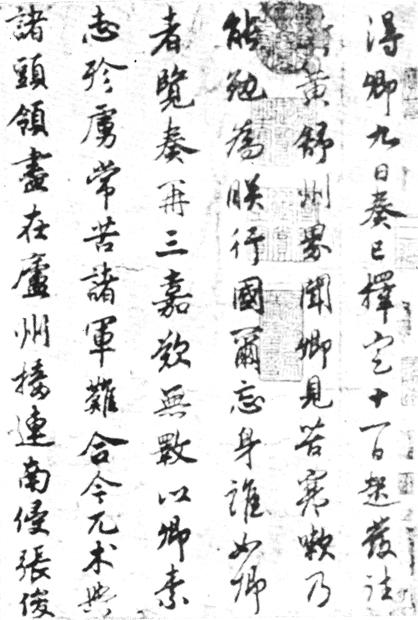 得卿九日奏已擇定十一日起發往
蘄黃舒州界聞卿見苦寒嗽乃
能勉為朕行國爾忘身誰如卿
者覽奏再三嘉歎無斁以卿素
志殄虜常苦諸軍難合今兀朮與
諸頭領盡在廬州接連南侵張俊